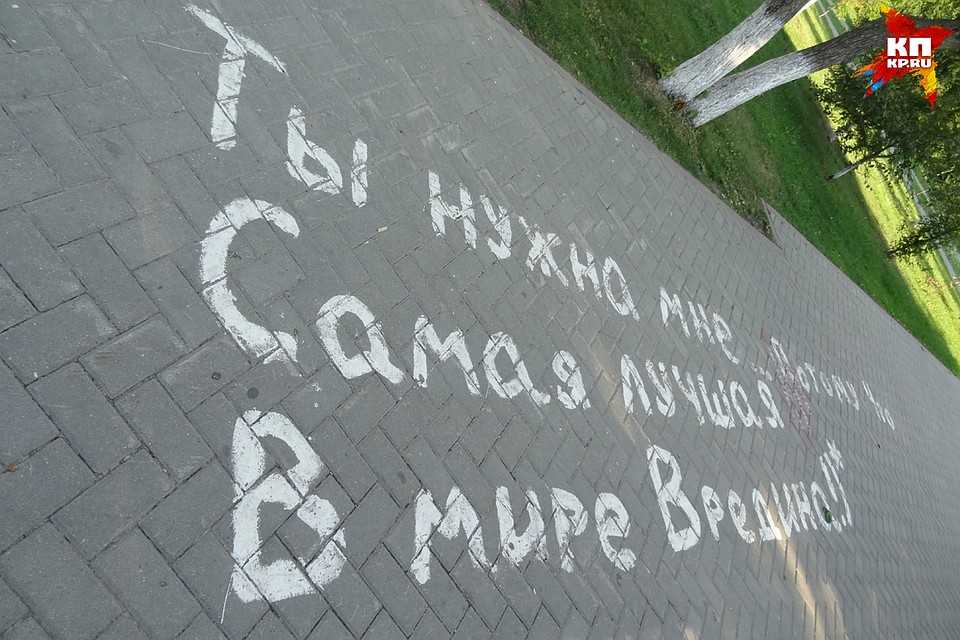 Ты нужна мне Потому что
Самая лучшая
В мире Вредина!)*
КП
KP.RU